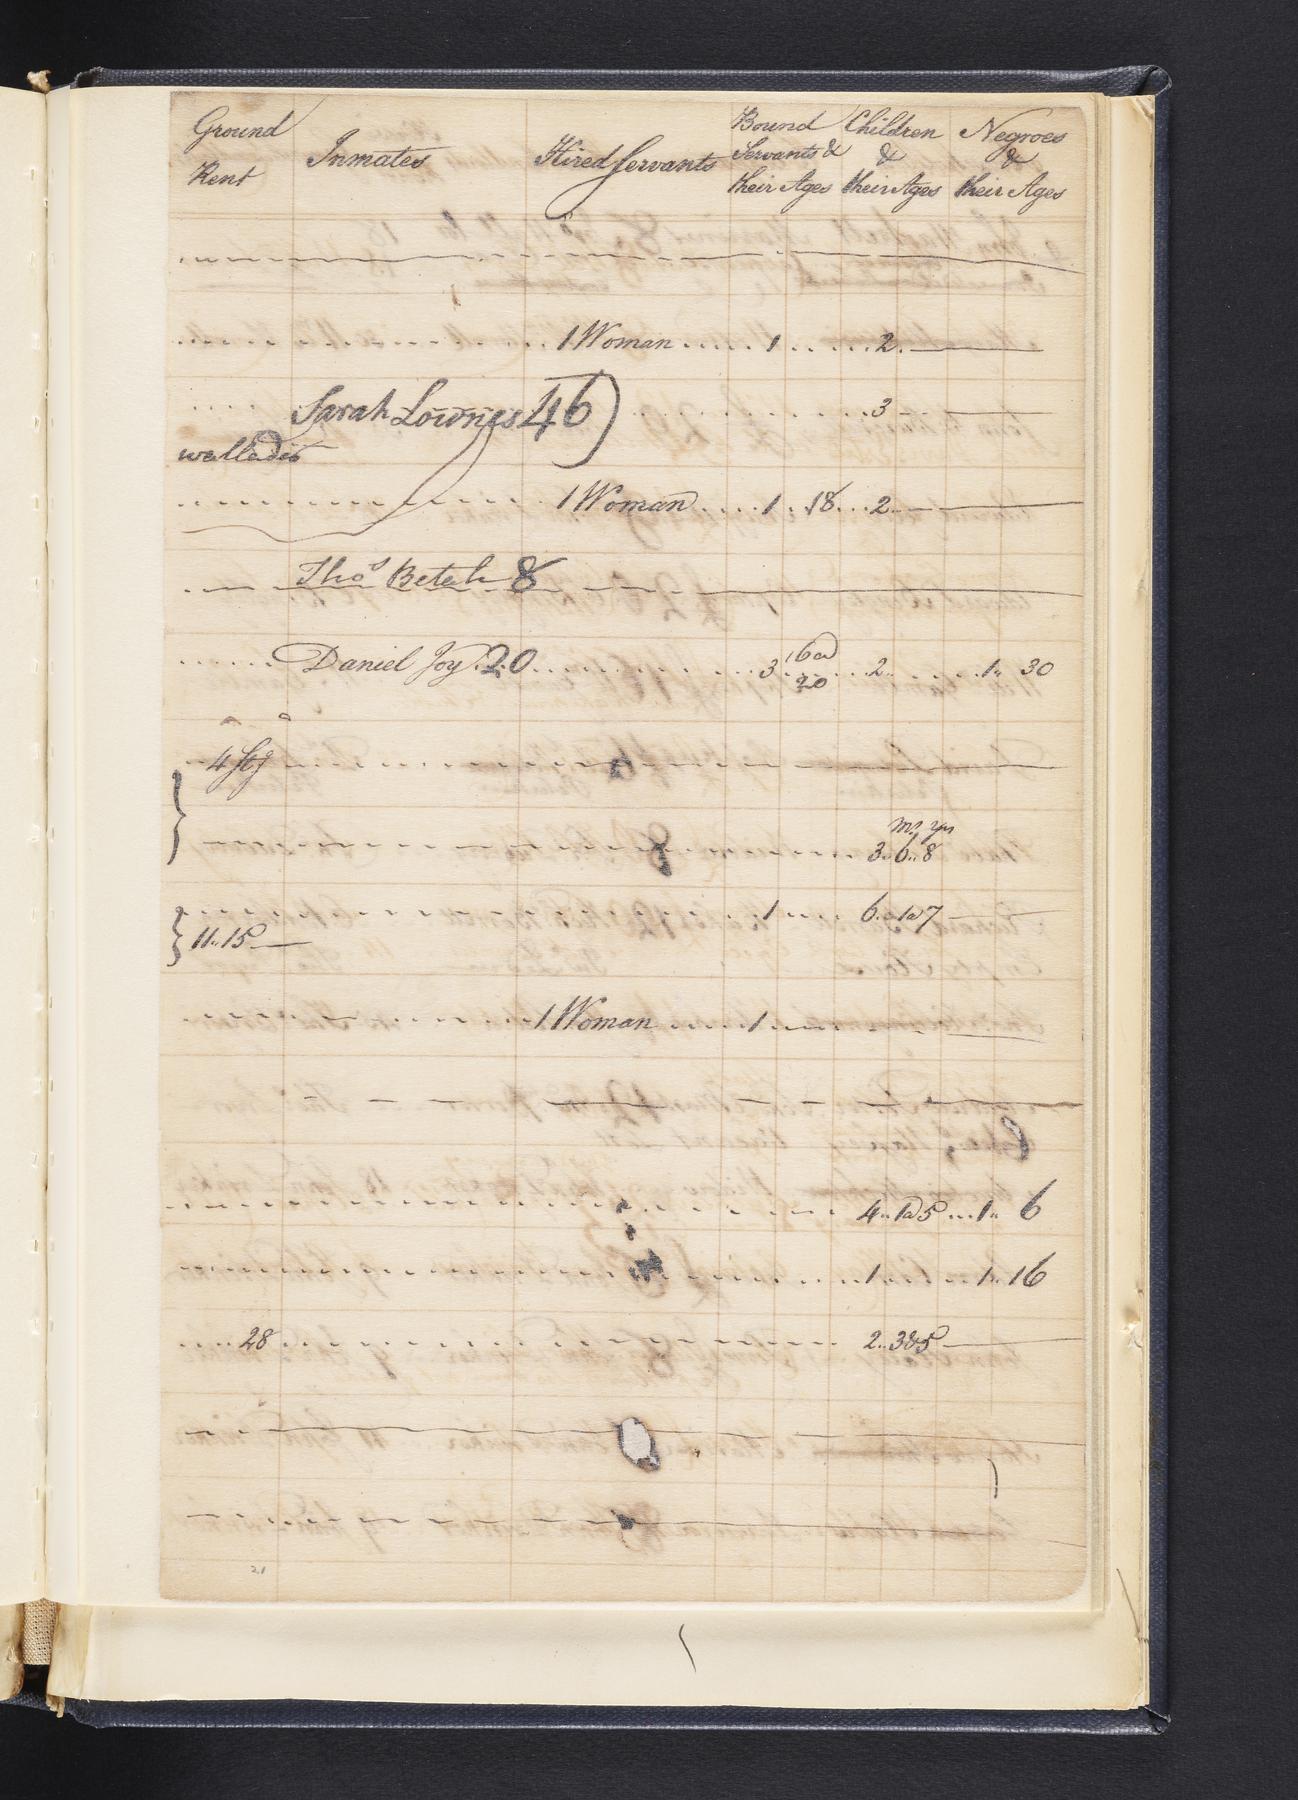 Ground Rent Inmates Hired Servants Bound Servants & their Ages Children & their Ages Negroes & their Ages
1 Woman 1 2
Sarah Lownes 46 3
1 Woman 1 18 2
Thos Betah 8
Daniel Joy 20 3 16 a 20 2 1 30
4 Stg
ms yrs
3 6 8
1 6 1 a 7
11 15
1 Woman 1
4 1 a 5 1 6
1 1 16
28 2 3 & 5
21